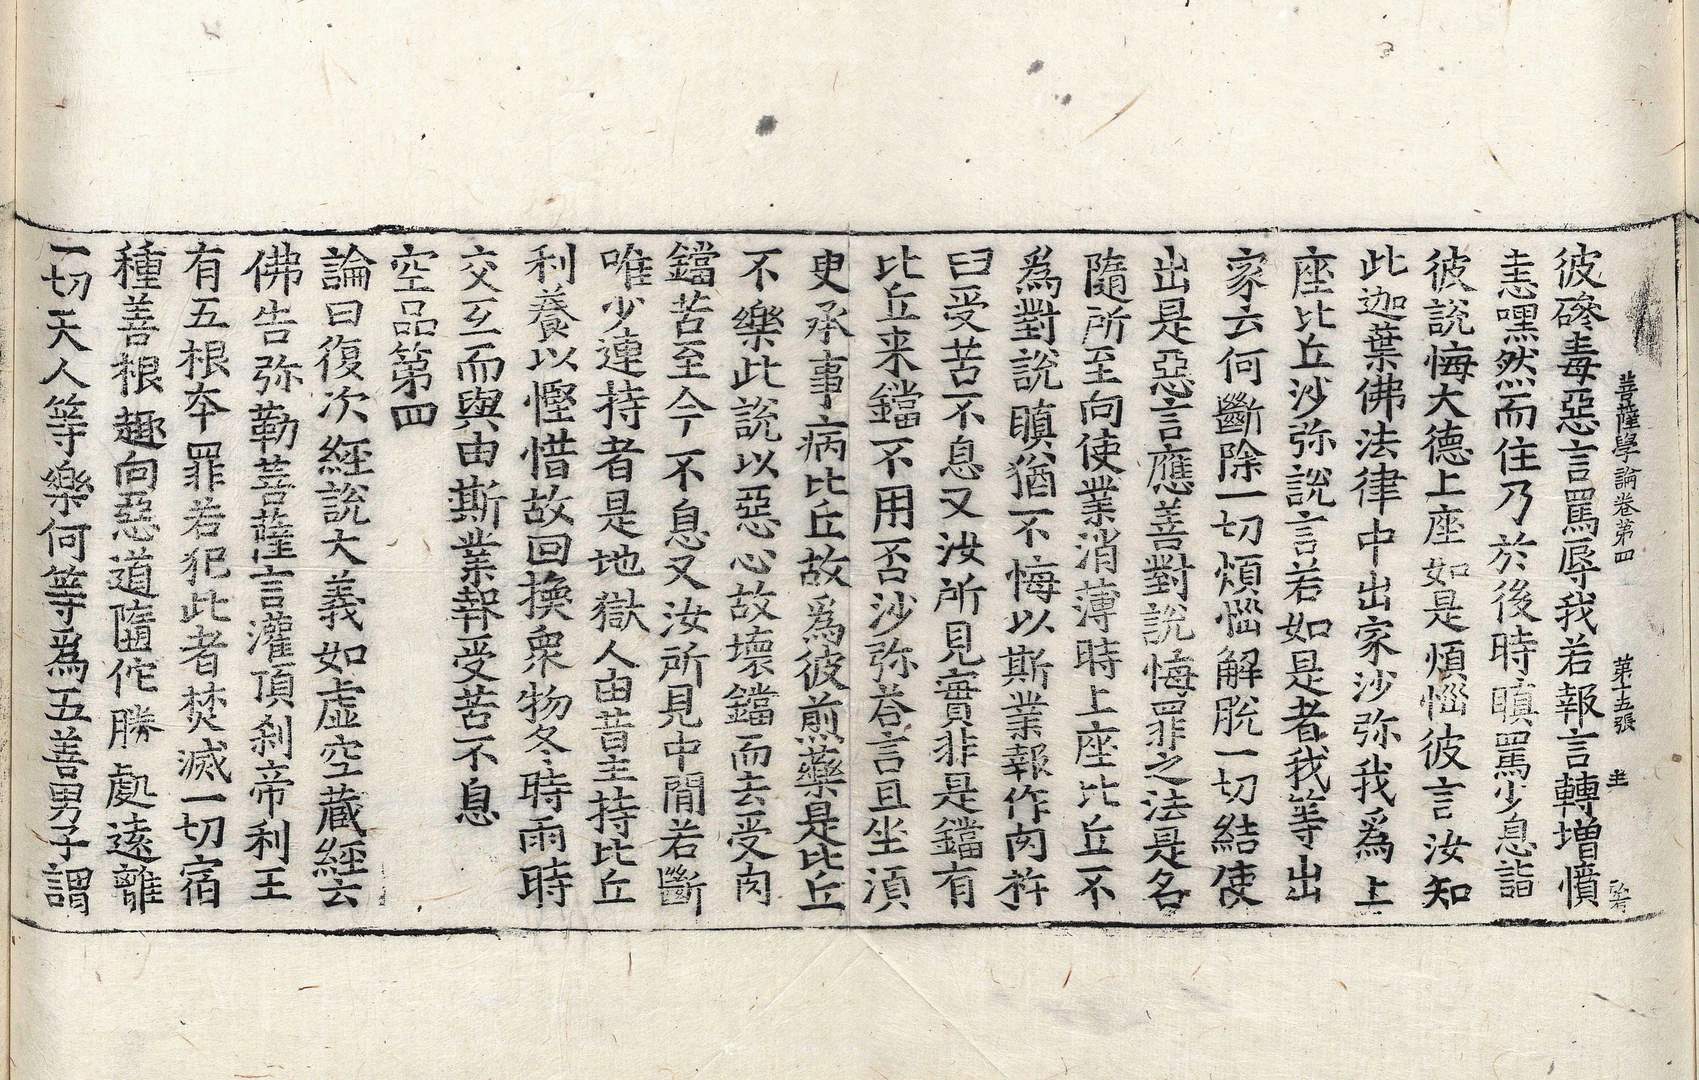 菩薩學論卷第四 第十五張 圭
彼磣毒惡言罵辱我若報言轉增憤
恚嘿然而住乃於後時瞋罵少息詣
彼說悔大德上座如是煩惱彼言汝知
此迦葉佛法律中出家沙弥我爲上
座比丘沙弥說言若如是者我等出
家云何斷除一切煩惱解脫一切結使
出是惡言應善對說悔罪之法是名
隨所至向使業消薄時上座比丘不
爲對說瞋猶不悔以斯業報作肉杵
曰受苦不息又汝所見實非是鐺有
比丘来鐺不用否沙弥荅言且坐湏
史承事病比丘故爲彼煎藥是比丘
不樂此說以惡心故壞鐺而去受肉
鐺苦至今不息又汝所見中閒若斷
唯少連持者是地獄人由昔主持比丘
利養以慳惜故回換衆物冬時雨時
交互而與由斯業報受苦不息
空品第四
論曰復次經說大義如虛空藏經云
佛告弥勒菩薩言灌頂刹帝利王
有五根夲罪若犯此者焚滅一切宿
種善根趣向惡道隨佗勝處遠離
一切天人等樂何等爲五善男子謂